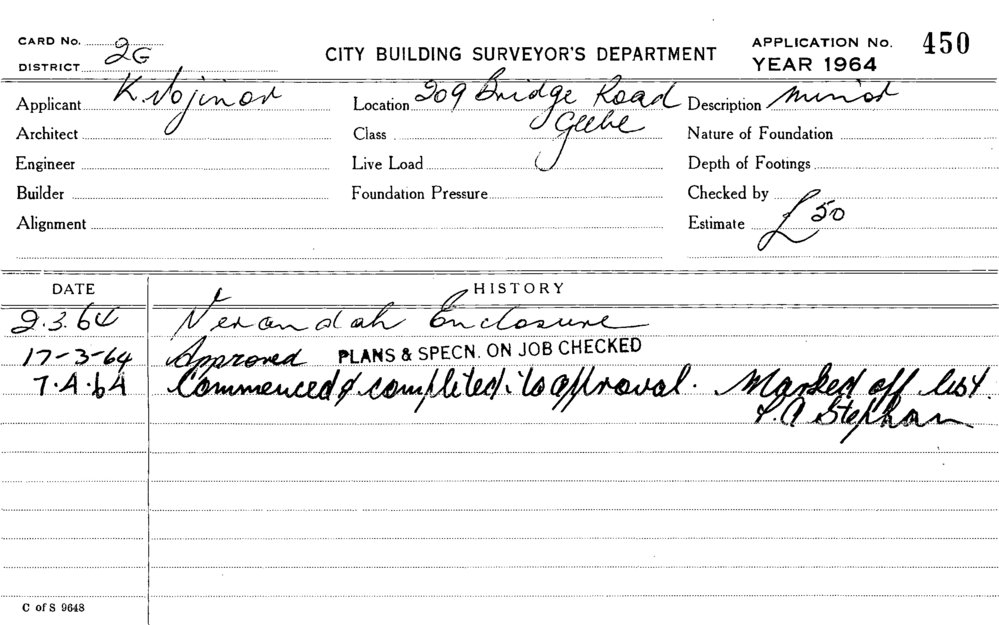 CARD No. 2G
CITY BUILDING SURVEYOR'S DEPARTMENT
APPLICATION No. 450
DISTRICT
YEAR 1964
Applicant K. Nojinov Location 209 Bridge Road Description Minor
Architect Class Glebe Nature of Foundation
Engineer Live Load Depth of Footings
Builder Foundation Pressure Checked by
Alignment Estimate £50
DATE HISTORY
2.3.64 Verandah Enclosure
17-3-64 Approved PLANS & SPECN. ON JOB CHECKED
7.4.64 Commenced & completed to approval. Marked off list.
L.A Stephan
C of S 9648